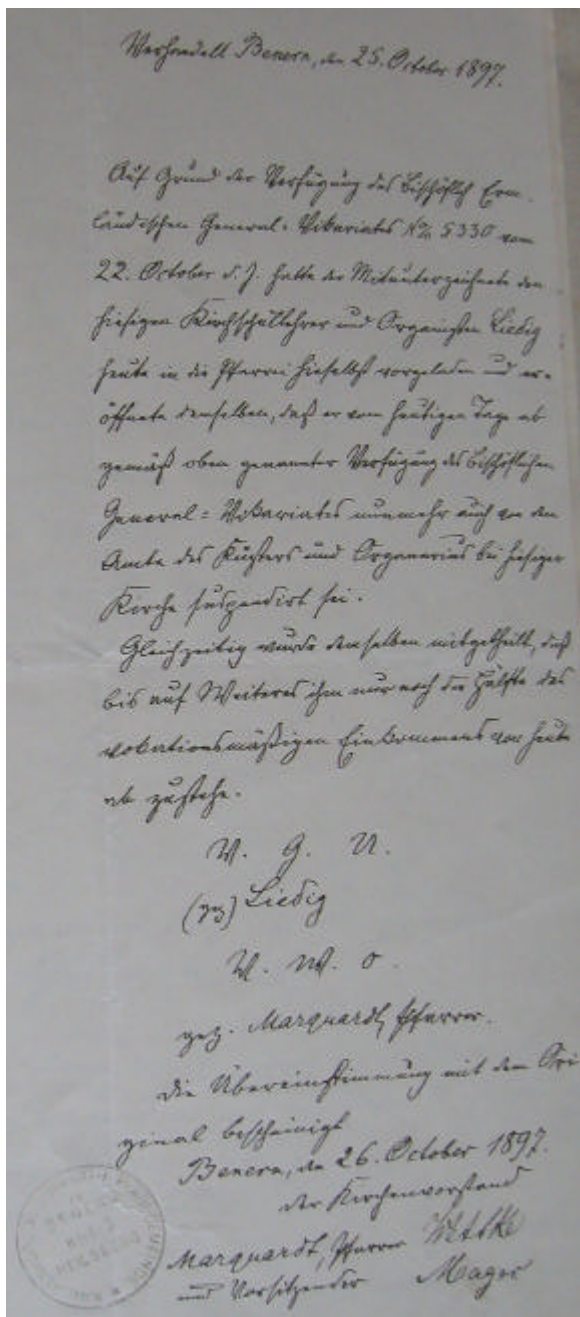 Verhandelt Benern, den 25. October 1897.
Auf Grund der Verfügung des Bischöflich Erm-
ländischen General-Vikariates No. 5330 vom
22. October d. J. hatte der Mitunterzeichnete den
hiesigen Kirchschullehrer und Organisten Liedig
heute in die Pfarrei hieselbst vorgeladen und er-
öffnete demselben, daß er vom heutigen Tage ab
gemäß oben genannter Verfügung des Bischöflichen
General-Vikariates nunmehr auch von dem
Amte des Küsters und Organarius bei hiesiger
Kirche suspendirt sei.
Gleichzeitig wurde demselben mitgetheilt, daß
bis auf Weiteres ihm nur noch die Hälfte des
vokationsmäßigen Einkommens von heute
ab zustehe.
V. G. U.
(gz) Liedig
V. w. o.
gez. Marquardt, Pfarrer.
Die Übereinstimmung mit dem Ori
ginal bescheinigt
Benern, den 26. October 1897.
der Kirchenvorstand
Marquardt, Pfarrer
und Vorsitzender Mager